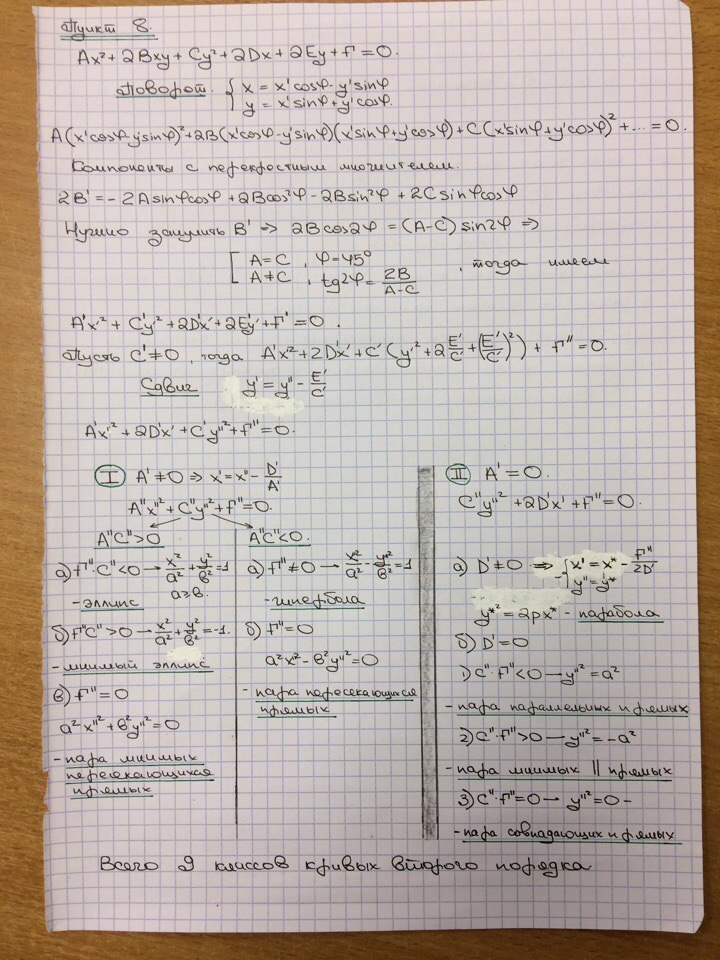 Пункт 8.
Ax² + 2Bxy + Cy² + 2Dx + 2Ey + F = 0.
Поворот. { x = x'cosφ - y'sinφ
y = x'sinφ + y'cosφ.
A(x'cosφ - y'sinφ)² + 2B(x'cosφ - y'sinφ)(x'sinφ + y'cosφ) + C(x'sinφ + y'cosφ)² + ... = 0.
Компоненты с перекрестным множителем.
2B' = -2Asinφcosφ + 2Bcos²φ - 2Bsin²φ + 2Csinφcosφ
Нужно занулить B' ⇒ 2Bcos2φ = (A-C)sin2φ ⇒
[ A = C, φ = 45°
A ≠ C, tg2φ = 2B/(A-C) , тогда имеем
A'x'² + C'y'² + 2D'x' + 2E'y' + F' = 0.
Пусть C' ≠ 0, тогда A'x'² + 2D'x' + C'(y'² + 2 E'/C' + (E'/C')²) + F'' = 0.
Сдвиг y' = y'' - E'/C'
A'x'² + 2D'x' + C'y''² + F'' = 0.
I A' ≠ 0 ⇒ x' = x'' - D'/A'
A''x''² + C''y''² + F'' = 0.
A''C'' > 0
а) F''·C'' < 0 → x²/a² + y²/b² = 1
a ≥ b.
- эллипс
б) F''C'' > 0 → x²/a² + y²/b² = -1.
- мнимый эллипс
в) F'' = 0
a²x''² + b²y''² = 0
- пара мнимых
пересекающихся
прямых
A''C'' < 0.
а) F'' ≠ 0 → x²/a² - y²/b² = 1
- гипербола
б) F'' = 0
a²x² - b²y''² = 0
- пара пересекающихся
прямых
II A' = 0.
C''y''² + 2D'x' + F'' = 0.
а) D' ≠ 0 ⇒ { x' = x* - F''/2D'
y'' = y*
y*² = 2px* - парабола
б) D' = 0
1) C''·F'' < 0 → y''² = a²
- пара параллельных прямых
2) C''·F'' > 0 → y''² = -a²
- пара мнимых || прямых
3) C''·F'' = 0 — y''² = 0 -
- пара совпадающих прямых
Всего 9 классов кривых второго порядка